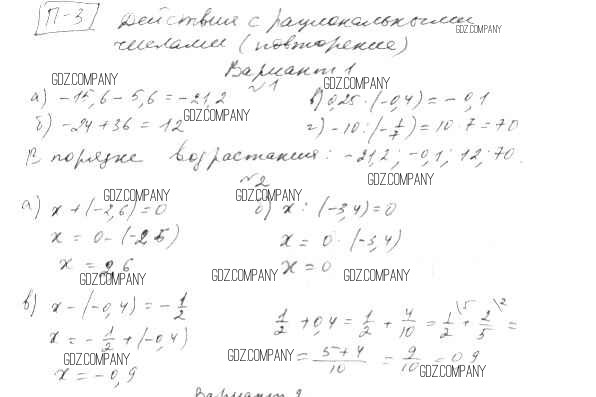 П-3 Действия с рациональными
числами (повторение)
GDZ.COMPANY
Вариант 1
№1
GDZ.COMPANY GDZ.COMPANY
а) -15,6 - 5,6 = -21,2 в) 0,25 · (-0,4) = -0,1
GDZ.COMPANY
б) -24 + 36 = 12 г) -10 : (-1/7) = 10 · 7 = 70
В порядке возрастания: -21,2; -0,1; 12; 70.
№2 GDZ.COMPANY
GDZ.COMPANY GDZ.COMPANY
а) x + (-2,6) = 0 б) x : (-3,4) = 0
x = 0 - (-2,6) x = 0 · (-3,4)
x = 2,6 x = 0
GDZ.COMPANY GDZ.COMPANY GDZ.COMPANY
в) x - (-0,4) = -1/2 1/2 + 0,4 = 1/2 + 4/10 = 1/2 \5 + 2/5 \2 =
x = -1/2 + (-0,4)
GDZ.COMPANY GDZ.COMPANY = 5+4/10 = 9/10 = 0,9
x = -0,9 GDZ.COMPANY
Вариант 2